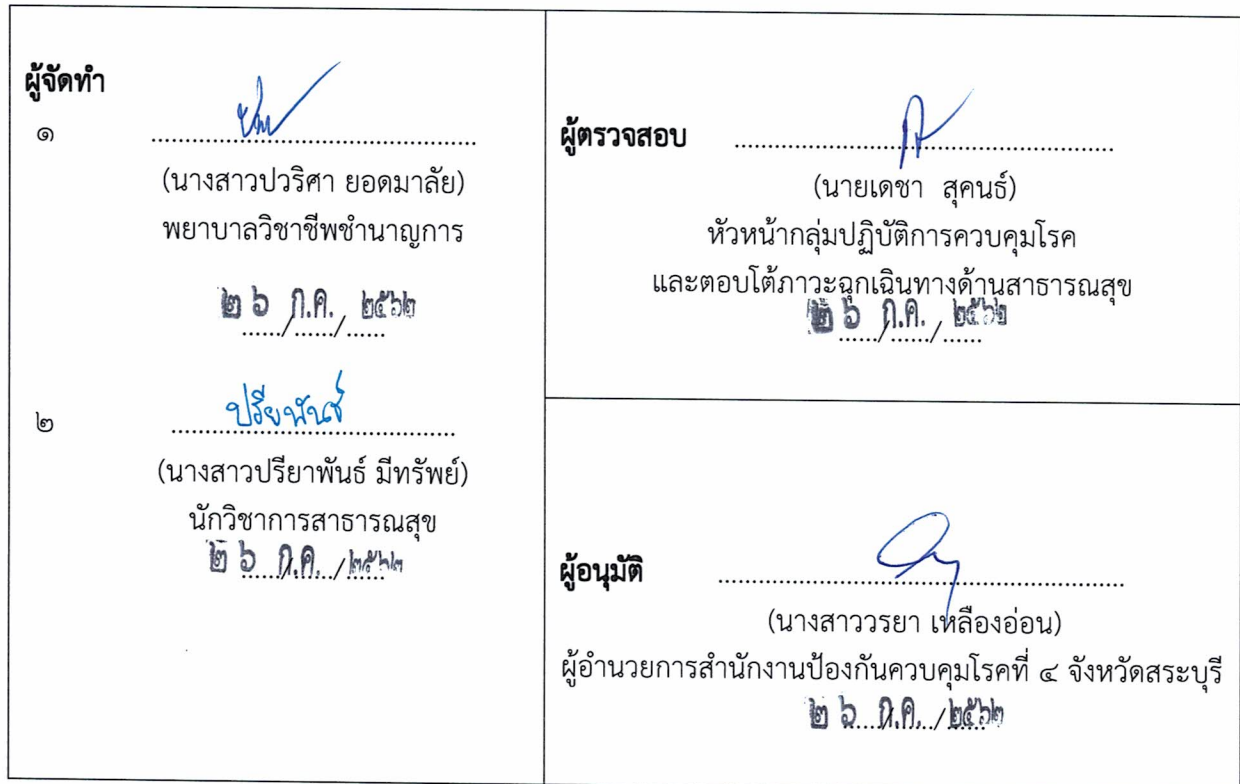 ผู้จัดทำ
๑ ........................................
(นางสาวปวริศา ยอดมาลัย)
พยาบาลวิชาชีพชำนาญการ
๒ ๖ ก.ค. ๒๕๖๒
....../....../......
๒ ปรียพันธ์
...................................
(นางสาวปรียาพันธ์ มีทรัพย์)
นักวิชาการสาธารณสุข
๒ ๖ ก.ค. ๒๕๖๒
....../....../......
ผู้ตรวจสอบ ...............................................
(นายเดชา สุคนธ์)
หัวหน้ากลุ่มปฏิบัติการควบคุมโรค
และตอบโต้ภาวะฉุกเฉินทางด้านสาธารณสุข
๒ ๖ ก.ค. ๒๕๖๒
....../....../......
ผู้อนุมัติ ..................................................
(นางสาววรยา เหลืองอ่อน)
ผู้อำนวยการสำนักงานป้องกันควบคุมโรคที่ ๔ จังหวัดสระบุรี
๒ ๖ ก.ค. ๒๕๖๒
....../....../......